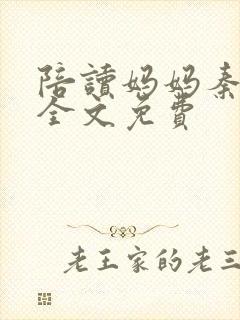 陪讀妈妈秦
全文免費
老王家的老三